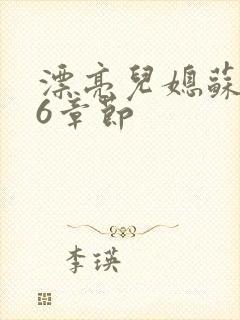 漂亮兒媳蘇
6章節
李瑛